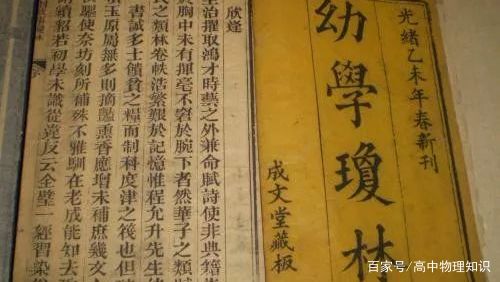 光緒乙未年春新刊
幼學瓊林
成文堂藏板
欣逢
主治擢取鴻才時藝之外兼命賦詩使非典籍
於胸中未有揮毫不窘於腕下者然華子之類賦
氏之類林卷軼浩繁艱於記憶惟程允升先生
書誠多士饋貧之糧而制科度津之筏也但
玉原屬無多則摘豔薰香應增未補庶幾文
驅使奈坊刻所補殊不雅馴在老成能知去
續貂若初學未識從違反云全璧一經習染
百家号/高中物理知识